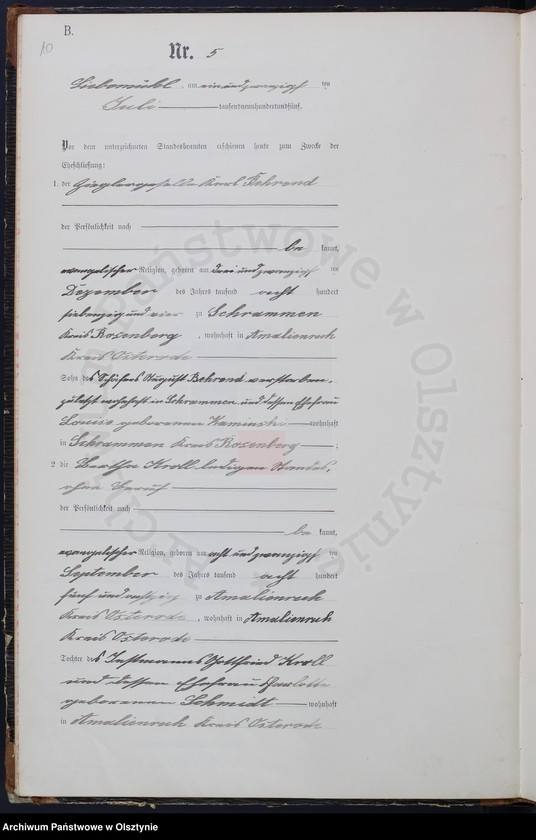 10
B.
Nr. 5
Liebemühl, am einundzwanzig ten
Juli tausendneunhundertundfünf.
Vor dem unterzeichneten Standesbeamten erschienen heute zum Zwecke der
Eheschließung:
1. der Zieglergeselle Karl Behrend
der Persönlichkeit nach
be kannt,
evangelischer Religion, geboren am dreiundzwanzig ten
Dezember des Jahres tausend acht hundert
siebenzig und vier zu Schrammen
Kreis Rosenberg, wohnhaft in Amalienruh
Kreis Osterode
Sohn des Schäfers August Behrend verstorben,
zuletzt wohnhaft in Schrammen und dessen Ehefrau
Louise geborenen Kaminski wohnhaft
in Schrammen Kreis Rosenberg ;
2. die Bertha Kroll ledigen Standes,
ohne Beruf
der Persönlichkeit nach
be kannt,
evangelischer Religion, geboren am acht und zwanzig ten
September des Jahres tausend acht hundert
fünf und achtzig zu Amalienruh
Kreis Osterode, wohnhaft in Amalienruh
Kreis Osterode
Tochter des Instmanns Gottfried Kroll
und dessen Ehefrau Charlotte
geborenen Schmidt wohnhaft
in Amalienruh Kreis Osterode
Archiwum Państwowe w Olsztynie
Archiwum Państwowe w Olsztynie